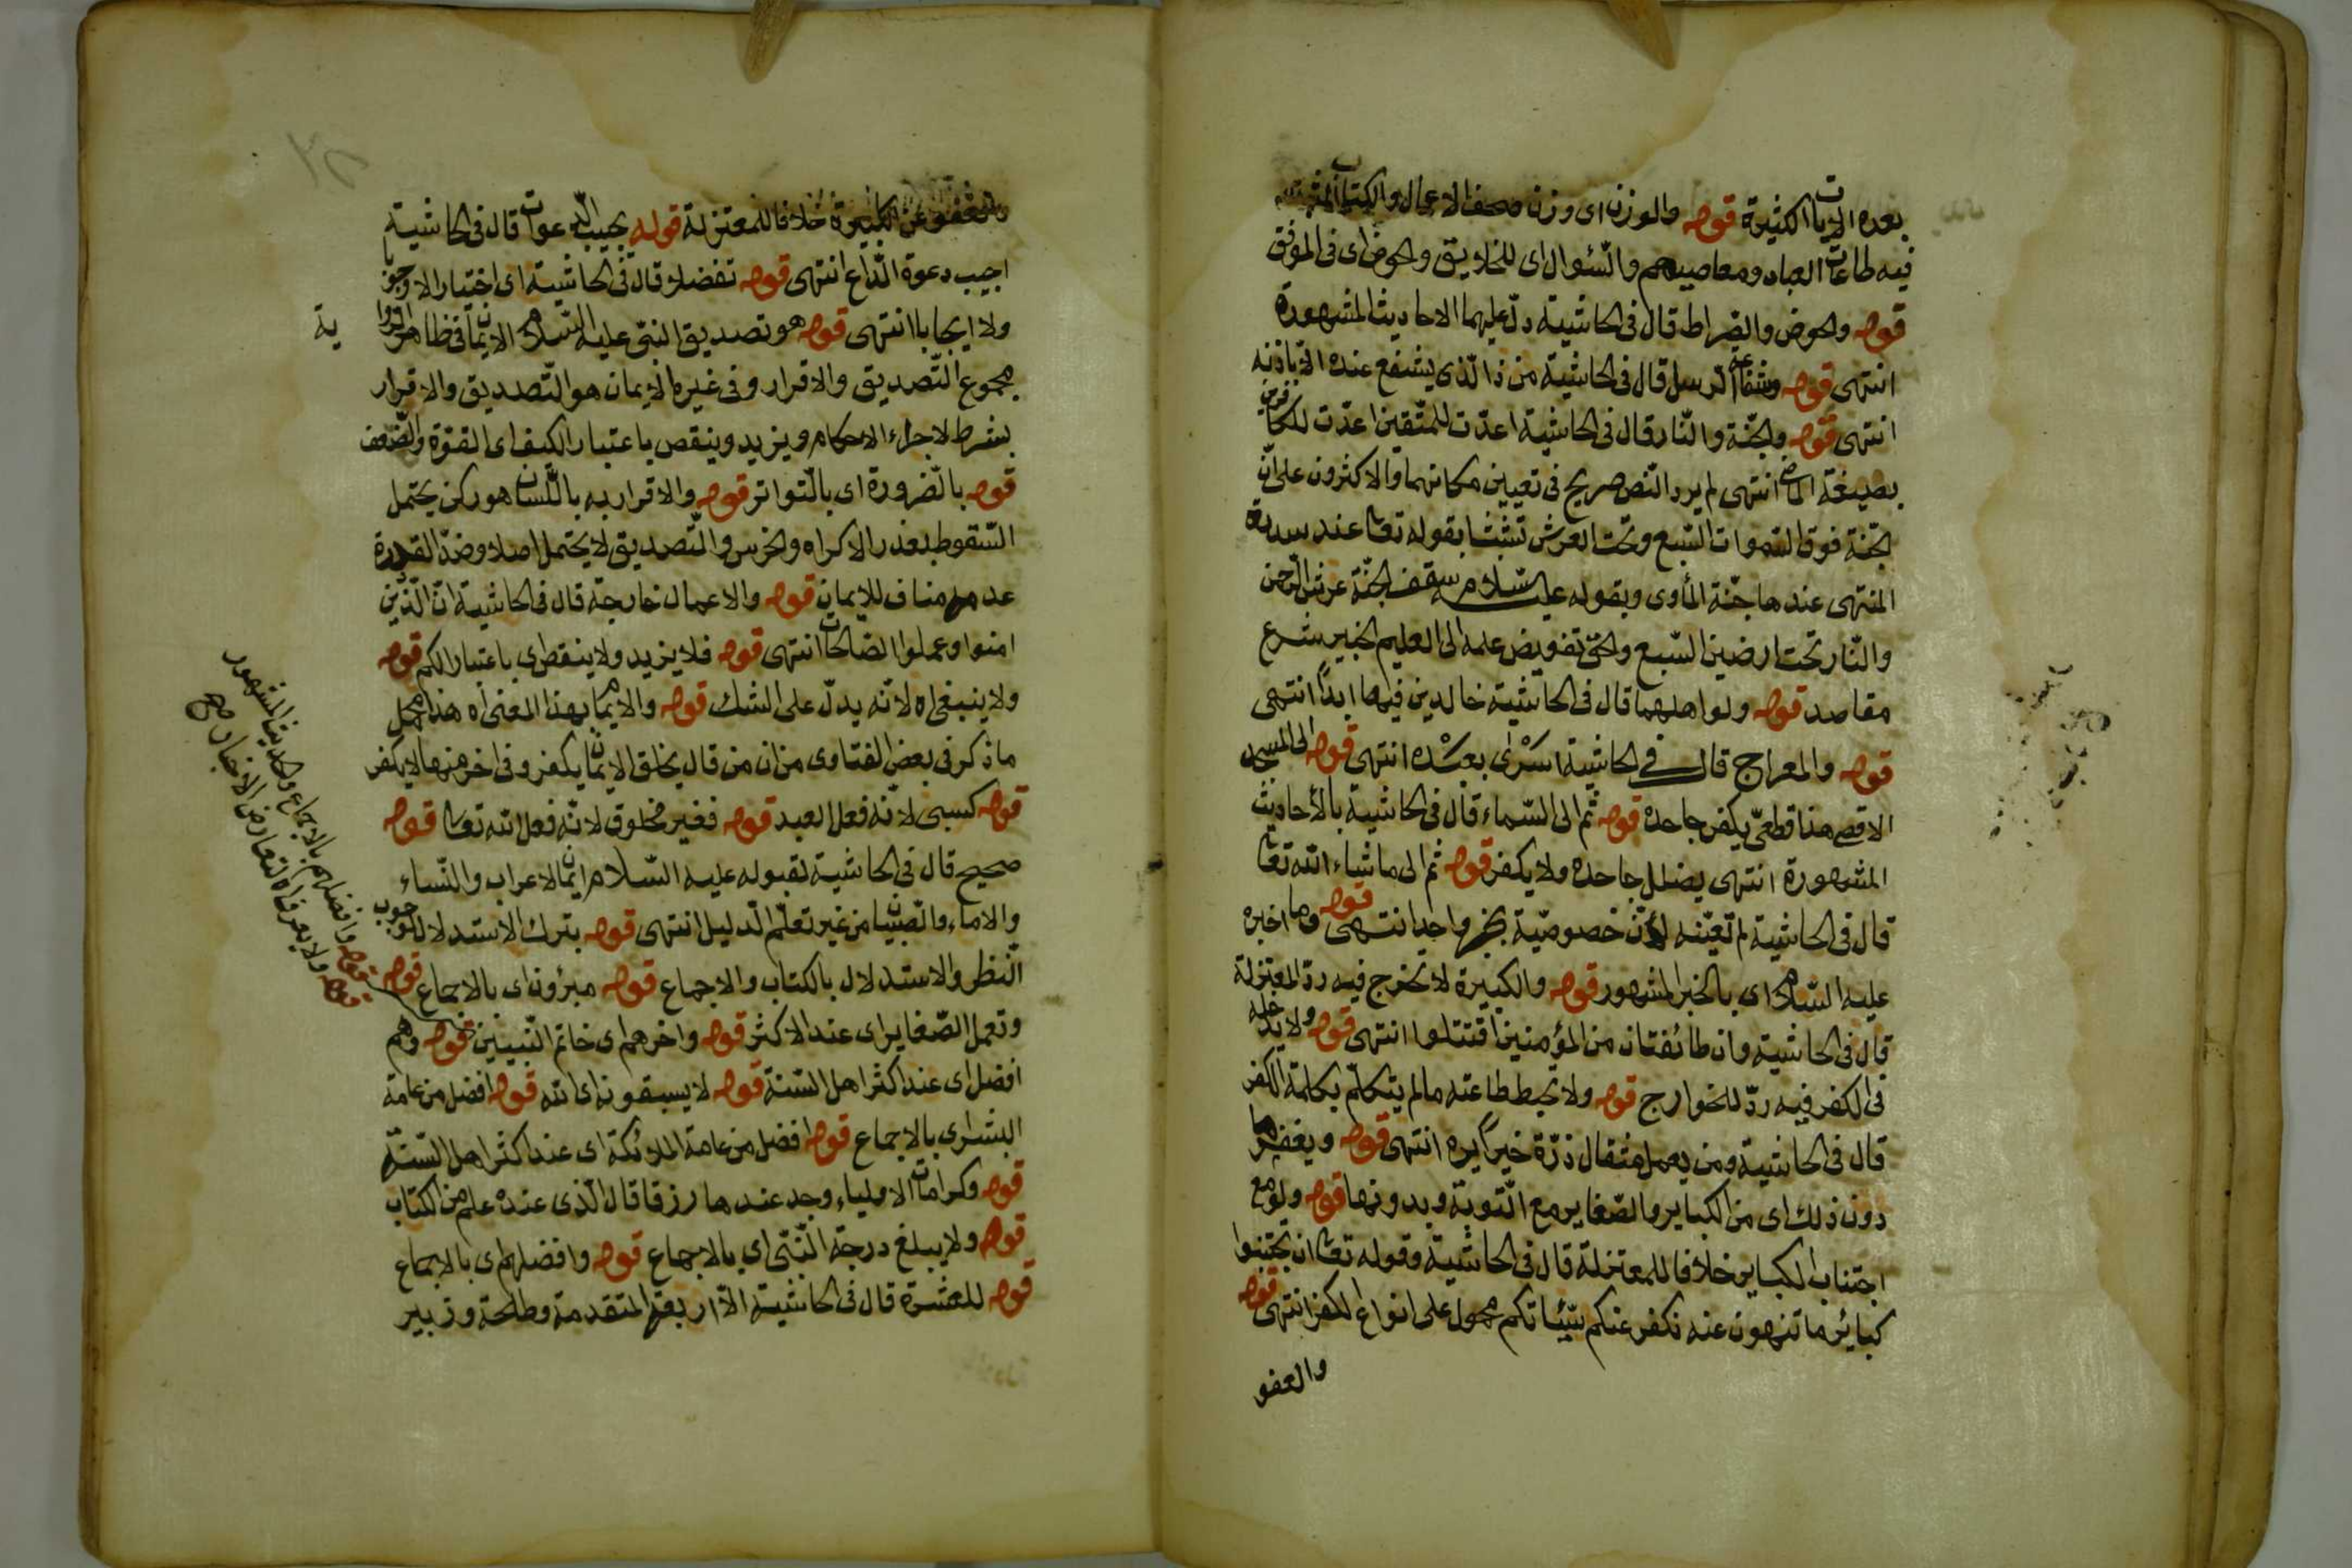 بعده الايات الكثيرة قوله والوزن اى وزن صحف الاعمال والكتاب المثبت
فيه طاعات العباد ومعاصيهم والسّئوال اى للخلايق والحوض اى فى الموقف
قوله والحوض والصّراط قال فى الحاشية دلّ عليهما الاحاديث المشهورة
انتهى قوله وشفاعة الرسل قال فى الحاشية من ذا الّذى يشفع عنده الّا باذنه
انتهى قوله والجنّة والنّار قال فى الحاشية اعدّت للمتّقين اعدّت للكافرين
بصيغة الماضى انتهى لم يرد النّص صريح فى تعيين مكانهما والاكثرون على انّ
الجنّة فوق السّموات السّبع وتحت العرش تشبثا بقوله تعا عند سدرة
المنتهى عندها جنّة المأوى وبقوله عليه السّلام سقف الجنّة عرش الرّحمن
والنّار تحت ارضين السّبع والحق تفويض علمه الى العليم الخبير شرع
مقاصد قوله ولو اهلهما قال فى الحاشية خالدين فيها ابدًا انتهى
قوله والمعراج قال فى الحاشية اسرى بعبده انتهى قوله الى المسجد
الاقصى هذا قطعىّ يكفر جاحده قوله ثم الى السّماء قال فى الحاشية بالأحاديث
المشهورة انتهى يضلل جاحده ولا يكفر قوله ثم الى ما شاء الله تعا
قال فى الحاشية لم تعيّنه لأنّ خصوصيّة بخبر واحد انتهى قوله وما اخبره
عليه السّلام اى بالخبر المشهور قوله والكبيرة لا تخرج فيه ردّ المعتزلة
قال فى الحاشية وان طائفتان من المؤمنين اقتتلوا انتهى قوله ولا يدخله
فى الكفر فيه ردّ للخوارج قوله ولا يحبط طاعته ما لم يتكلّم بكلمة الكفر
قال فى الحاشية ومن يعمل مثقال ذرّة خيرًا يره انتهى قوله ويغفر ما
دون ذلك اى من الكباير والصّغاير مع التّوبة وبدونها قوله ولو مع
اجتناب الكباير خلافا للمعتزلة قال فى الحاشية وقوله تعا ان تجتنبوا
كبائر ما تنهون عنه نكفر عنكم سيّئاتكم محمول على انواع الكفر انتهى قوله
والعفو
والعفو عن الكبيرة خلافا للمعتزلة قوله يجيب الدّعوات قال فى الحاشية
اجيب دعوة الدّاع انتهى قوله تفضلا قال فى الحاشية اى اختيارا لا وجوبا
ولا ايجابا انتهى قوله هو تصديق النبىّ عليه السّلام الايمان فى ظاهر الرواية
مجموع التّصديق والاقرار وفى غيره الايمان هو التّصديق والاقرار
بشرط لاجراء الاحكام ويزيد وينقص باعتبار الكيف اى القوّة والضّعف
قوله بالضّرورة اى بالتّواتر قوله والاقرار به باللّسان هو ركن يحتمل
السّقوط بعذر الاكراه والخرس والتّصديق لا يحتمل اصلا وضدّ القدرة
عدمه مناف للايمان قوله والاعمال خارجة قال فى الحاشية انّ الّذين
امنوا وعملوا الصّالحات انتهى قوله فلا يزيد ولا ينقص اى باعتبار الكم قوله
ولا ينبغى اه لانّه يدلّ على الشك قوله والايمان بهذا المعنى اه هذا محمل
ما ذكر فى بعض الفتاوى من ان من قال بخلق الايمان يكفر وفى اخر منها لا يكفر
قوله كسبى لانّه فعل العبد قوله فغير مخلوق لانّه فعل الله تعا قوله
صحيح قال فى الحاشية لقبوله عليه السّلام ايمان الاعراب والنّساء
والاماء والصّبيان من غير تعلّم الّدليل انتهى قوله بترك الاستدلال لوجوب
النّظر والاستدلال بالكتاب والاجماع قوله مبرؤن اى بالاجماع قوله
وتعمل الصّغاير اى عند الاكثر قوله واخرهم اى خاتم النّبيين قوله وهم
افضل اى عند اكثر اهل السّنة قوله لا يسبقونه اى الله قوله افضل من عامة
البشر اى بالاجماع قوله افضل من عامة الملائكة اى عند اكثر اهل السّنّة
قوله وكرامات الاولياء وجد عندها رزقا قال الّذى عنده علم من الكتاب
قوله ولا يبلغ درجة النّبّى اى بالاجماع قوله وافضلهم اى بالاجماع
قوله للعشرة قال فى الحاشية الّا اربعة المتقدمة وطلحة وزبير
قوله وافضلهم بالاجماع والحديث المشهور
قوله ولا يعرف اه لتعارض الاخبار